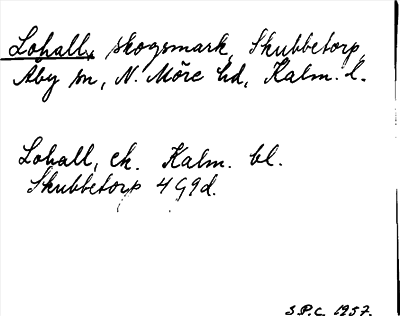 Lohall, skogsmark, Skubbetorp,
Åby sn, N. Möre hd, Kalm. l.
Lohall, ek. Kalm. bl.
Skubbetorp 4 G9d.
S.P.C. 1957.